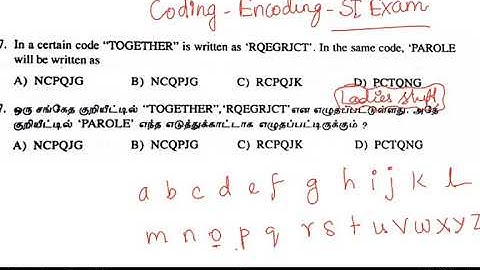 Coding - Encoding - SI Exam
7. In a certain code “TOGETHER” is written as ‘RQEGRJCT’. In the same code, ‘PAROLE
will be written as
A) NCPQJG B) NCQPJG C) RCPQJK D) PCTQNG
Ladies staff
7. ஒரு சங்கேத குறியீட்டில் “TOGETHER”,‘RQEGRJCT’என எழுதப்பட்டுள்ளது. அதே
குறியீட்டில் ‘PAROLE’ எந்த எடுத்துக்காட்டாக எழுதப்பட்டிருக்கும் ?
A) NCPQJG B) NCQPJG C) RCPQJK D) PCTQNG
a b c d e f g h i j k l
m n o p q r s t u v w x y z